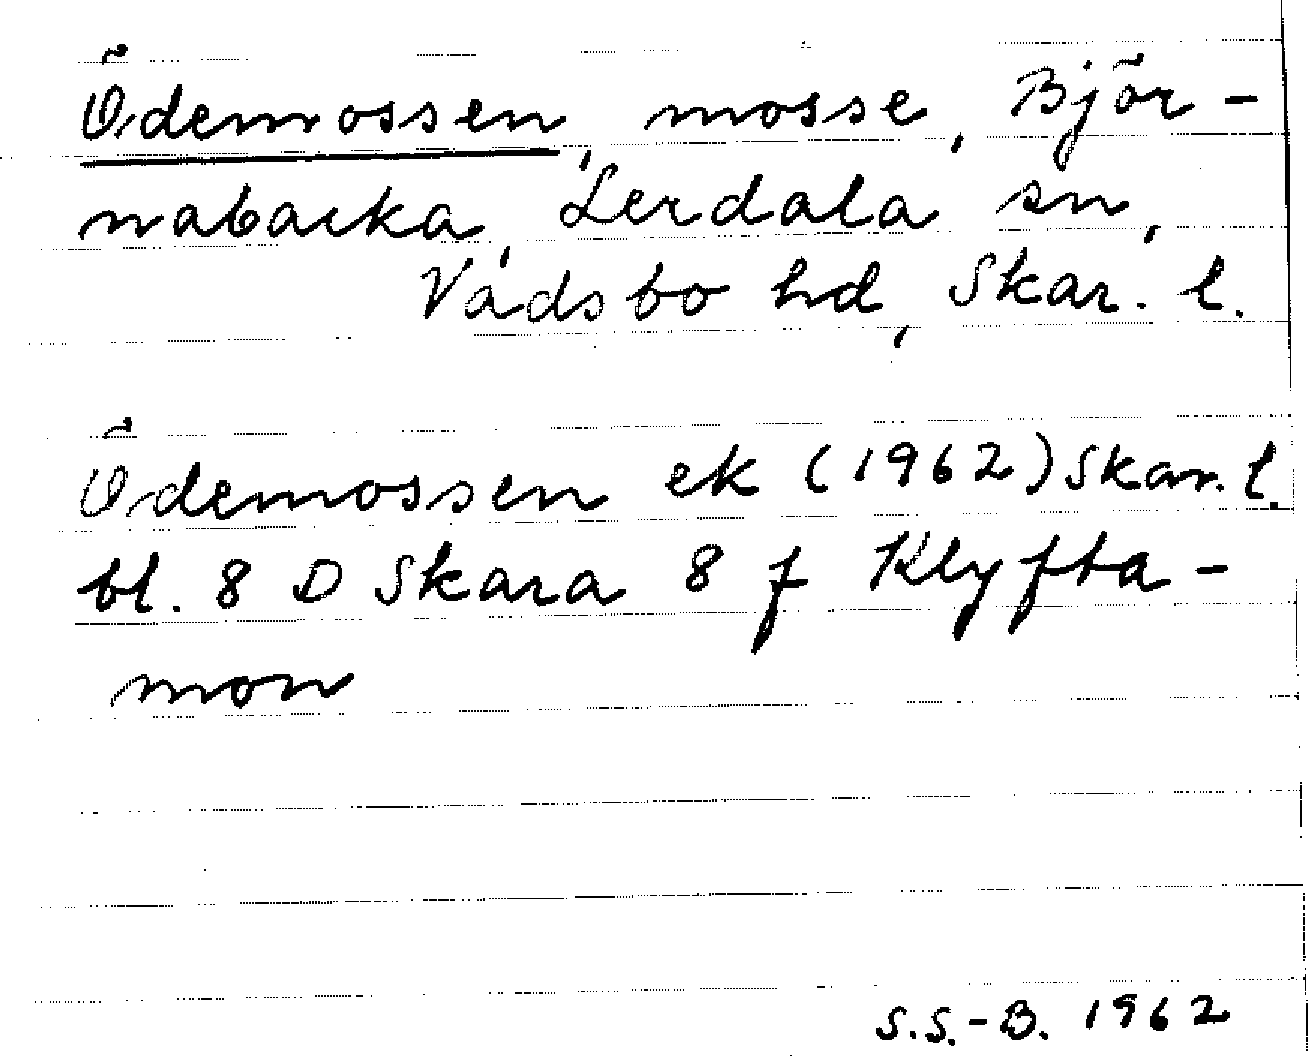 Ödemossen, mosse, Björ-
nabacka, Lerdala sn,
Vadsbo hd, Skar. l.
Ödemossen ek (1962) Skar. l.
bl. 8 D Skara 8 f Klyfta-
mon
S.S.-B. 1962